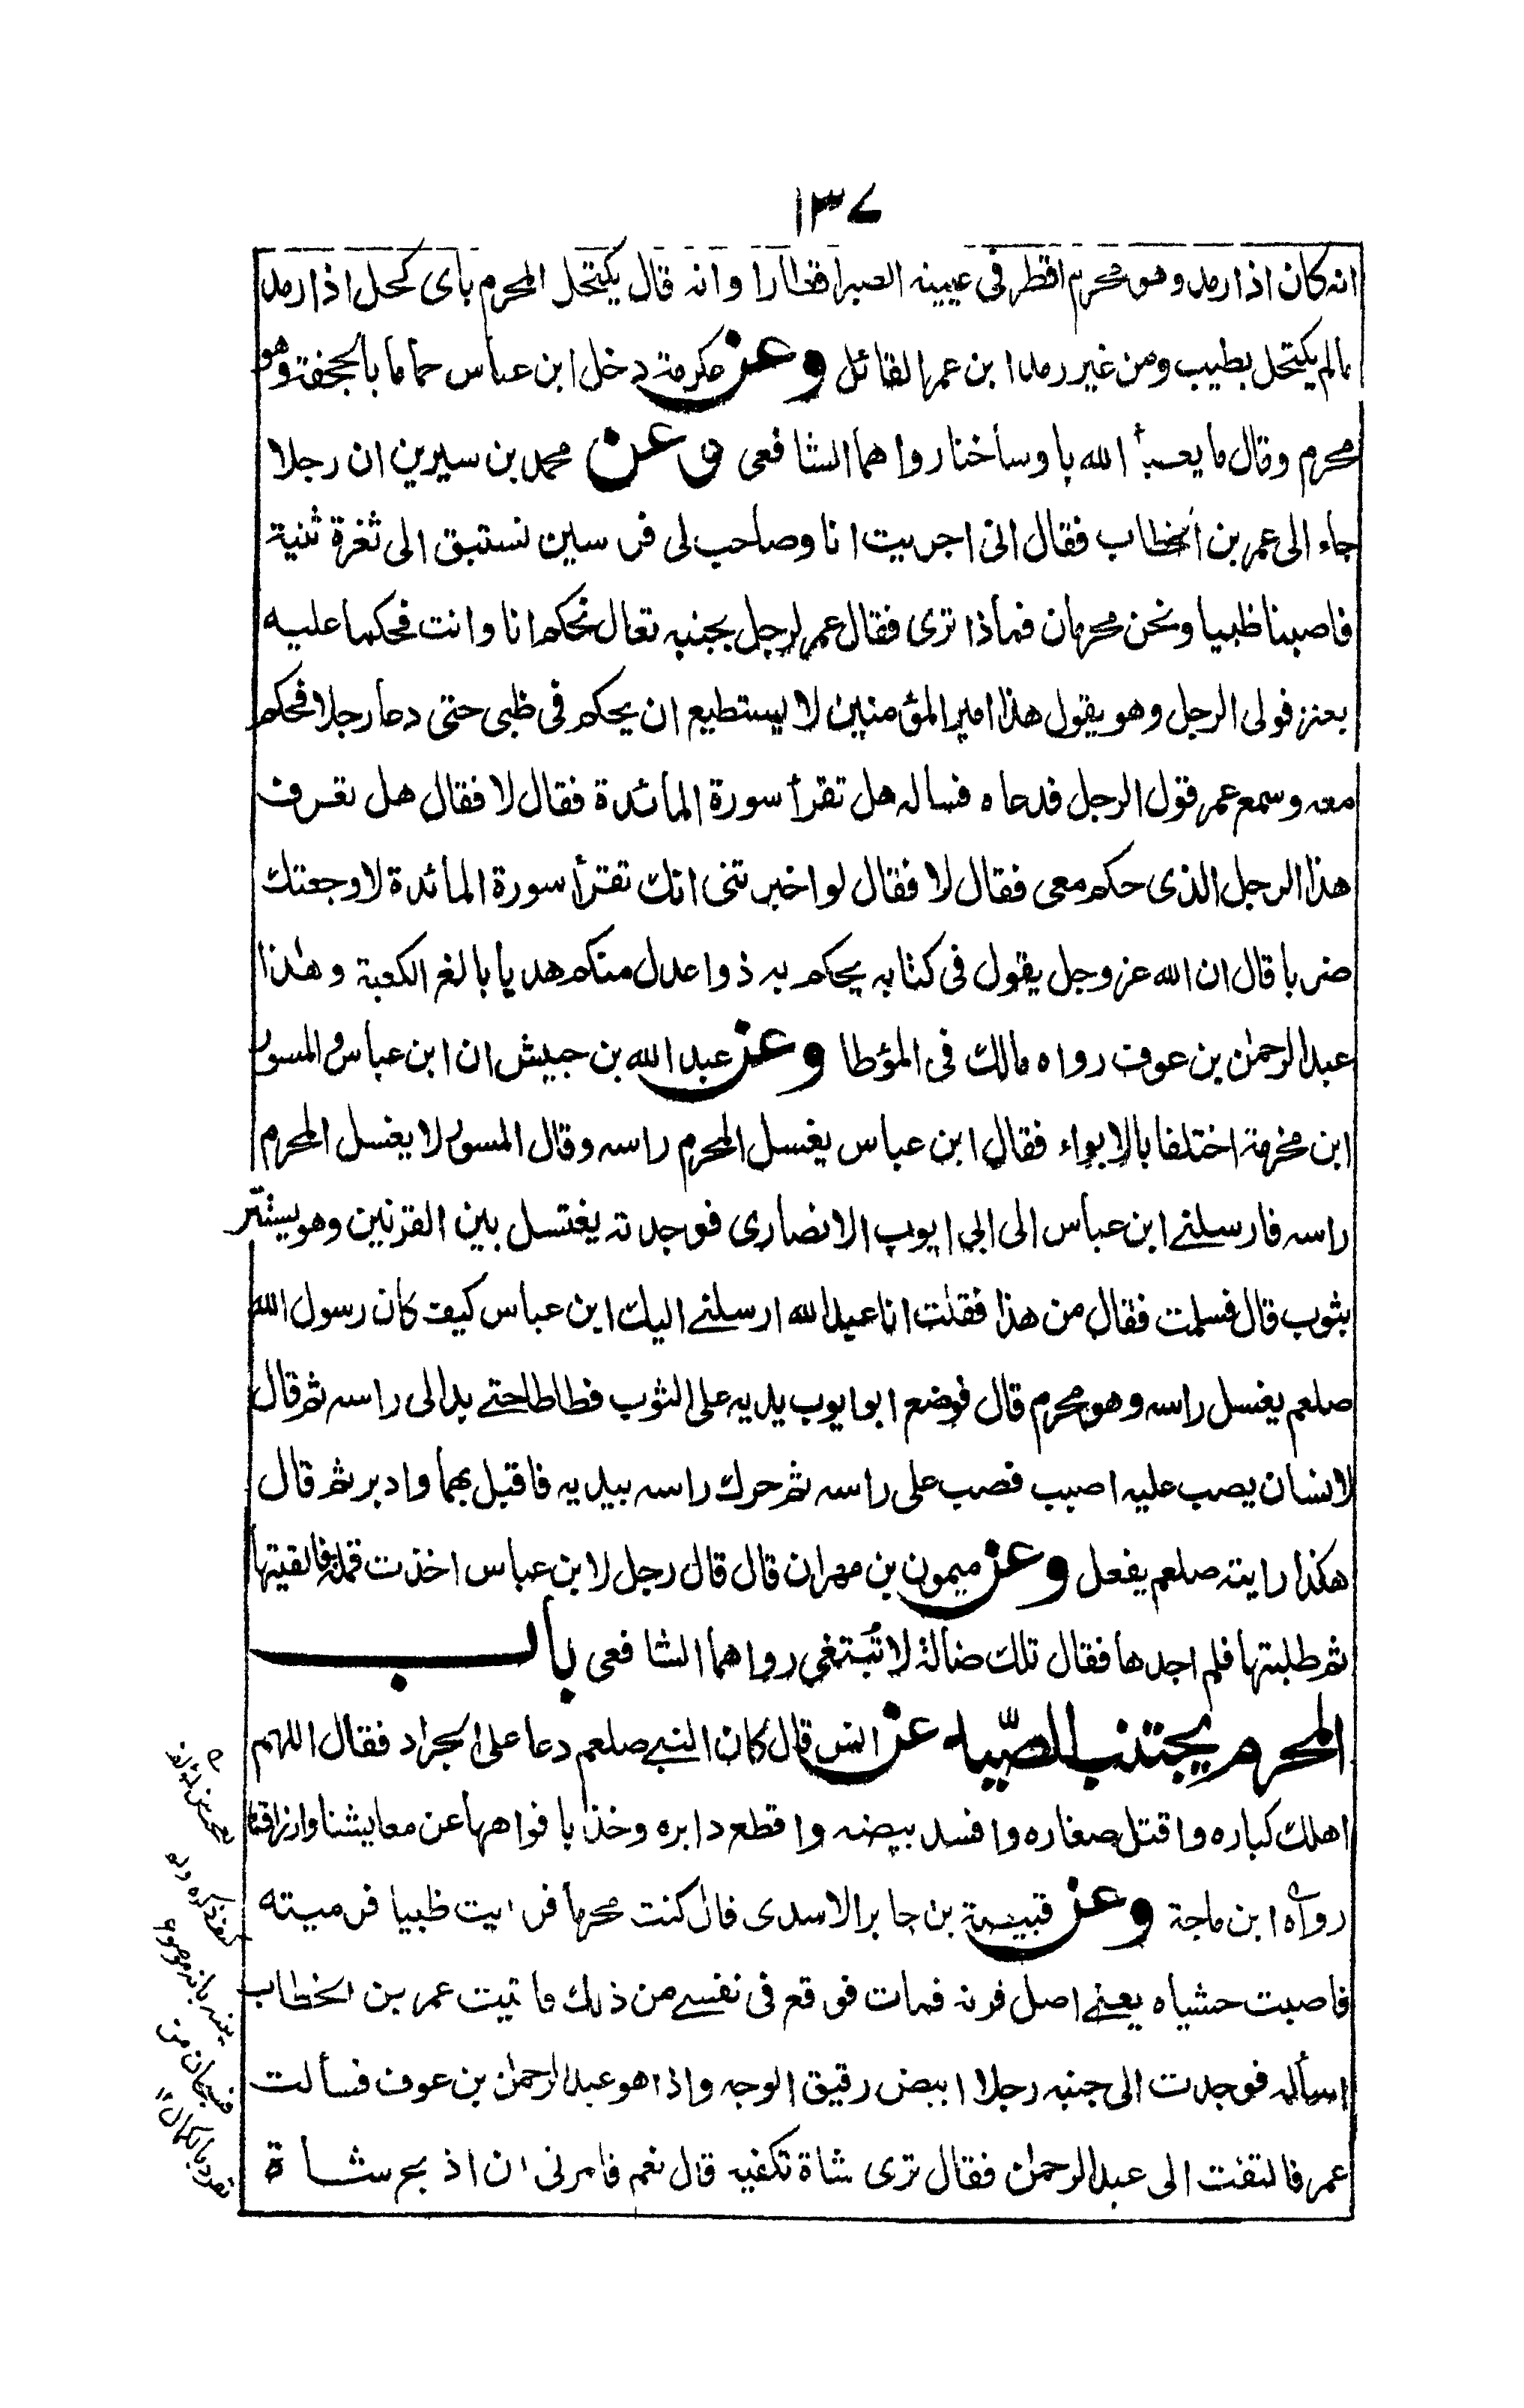 ١٣٧
انه كان اذا رمد وهو محرم اقطر فى عيينه الصبر اقطارا وانه قال يكتحل المحرم باى كحل اذا رمد
مالم يكتحل بطيب ومن غير رمد ابن عمر القائل وعن عكرمة دخل ابن عباس حماما بالجحفة وهو
محرم وقال ما يعبأ الله باوساخنا رواهما الشافعى وعن محمد بن سيرين ان رجلا
جاء الى عمر بن الخطاب فقال انى اجريت انا وصاحب لى فرسين نستبق الى ثغرة ثنية
فاصبنا ظبيا ونحن محرمان فماذا ترى فقال عمر لرجل بجنبه تعال نحكم انا وانت فحكما عليه
بعنز فولى الرجل وهو يقول هذا امير المؤمنين لا يستطيع ان يحكم فى ظبى حتى دعا رجلا فحكم
معه وسمع عمر قول الرجل فدعاه فساله هل تقرأ سورة المائدة فقال لا فقال هل تعرف
هذا الرجل الذى حكم معى فقال لا فقال لو اخبرتنى انك تقرأ سورة المائدة لاوجعتك
ضربا قال ان الله عز وجل يقول فى كتابه يحكم به ذوا عدل منكم هديا بالغ الكعبة وهذا
عبد الرحمن بن عوف رواه مالك فى المؤطا وعن عبد الله بن حبيش ان ابن عباس والمسور
ابن مخرمة اختلفا بالابواء فقال ابن عباس يغسل المحرم راسه وقال المسور لا يغسل المحرم
راسه فارسلنے ابن عباس الى ابى ايوب الانصارى فوجدته يغتسل بين القرنين وهو يستتر
بثوب قال فسلمت فقال من هذا فقلت انا عبد الله ارسلنے اليك ابن عباس كيف كان رسول الله
صلعم يغسل راسه وهو محرم قال فوضع ابو ايوب يديه على الثوب فطاطا حتے بدا لى راسه ثم قال
لانسان يصب عليه اصبب فصب على راسه ثم حرك راسه بيديه فاقبل بهما وادبر ثم قال
هكذا رايته صلعم يفعل وعن ميمون بن مهران قال قال رجل لابن عباس اخذت قملة فالقيتها
ثم طلبتها فلم اجدها فقال تلك ضالة لا تُبتغى رواهما الشافعى باب
المحرم يجتنب الصيد عن انس قال كان النبے صلعم دعا على الجراد فقال اللهم
اهلك كباره واقتل صغاره وافسد بيضه واقطع دابره وخذ بافواهها عن معايشنا وارزاقنا
رواه ابن ماجة وعن قبيصة بن جابر الاسدى قال كنت محرما فرايت ظبيا فرميته
فاصبت حشياه يعنے اصل قرنه فمات فوقع فى نفسے من ذلك فاتيت عمر بن الخطاب
اسأله فوجدت الى جنبه رجلا ابيض رقيق الوجه واذا هو عبد الرحمن بن عوف فسألت
عمر فالتفت الى عبد الرحمن فقال ترى شاة تكفيه قال نعم فامرنى ان اذبح شاة